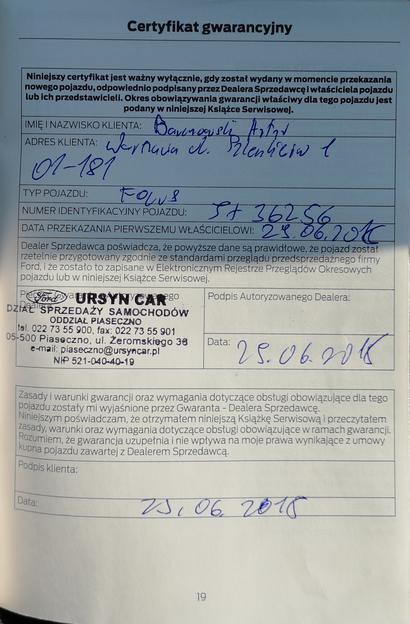 Certyfikat gwarancyjny
Niniejszy certyfikat jest ważny wyłącznie, gdy został wydany w momencie przekazania
nowego pojazdu, odpowiednio podpisany przez Dealera Sprzedawcę i właściciela pojazdu
lub ich przedstawicieli. Okres obowiązywania gwarancji właściwy dla tego pojazdu jest
podany w niniejszej Książce Serwisowej.
IMIĘ I NAZWISKO KLIENTA:
ADRES KLIENTA: Warszawa ul. 1
01-181
TYP POJAZDU: Focus
NUMER IDENTYFIKACYJNY POJAZDU: 36256
DATA PRZEKAZANIA PIERWSZEMU WŁAŚCICIELOWI: 29.06.2015
Dealer Sprzedawca poświadcza, że powyższe dane są prawidłowe, że pojazd został
rzetelnie przygotowany zgodnie ze standardami przeglądu przedsprzedażnego firmy
Ford, i że zostało to zapisane w Elektronicznym Rejestrze Przeglądów Okresowych
pojazdu lub w niniejszej Książce Serwisowej.
Ford URSYN CAR
DZIAŁ SPRZEDAŻY SAMOCHODÓW
ODDZIAŁ PIASECZNO
tel. 022 73 55 900, fax: 022 73 55 901
05-500 Piaseczno, ul. Żeromskiego 36
e-mail: piaseczno@ursyncar.pl
NIP 521-040-40-19
Podpis Autoryzowanego Dealera:
Data: 29.06.2015
Zasady i warunki gwarancji oraz wymagania dotyczące obsługi obowiązujące dla tego
pojazdu zostały mi wyjaśnione przez Gwaranta - Dealera Sprzedawcę.
Niniejszym poświadczam, że otrzymałem niniejszą Książkę Serwisową i przeczytałem
zasady, warunki oraz wymagania dotyczące obsługi obowiązujące w ramach gwarancji.
Rozumiem, że gwarancja uzupełnia i nie wpływa na moje prawa wynikające z umowy
kupna pojazdu zawartej z Dealerem Sprzedawcą.
Podpis klienta:
Data: 29.06.2015
19